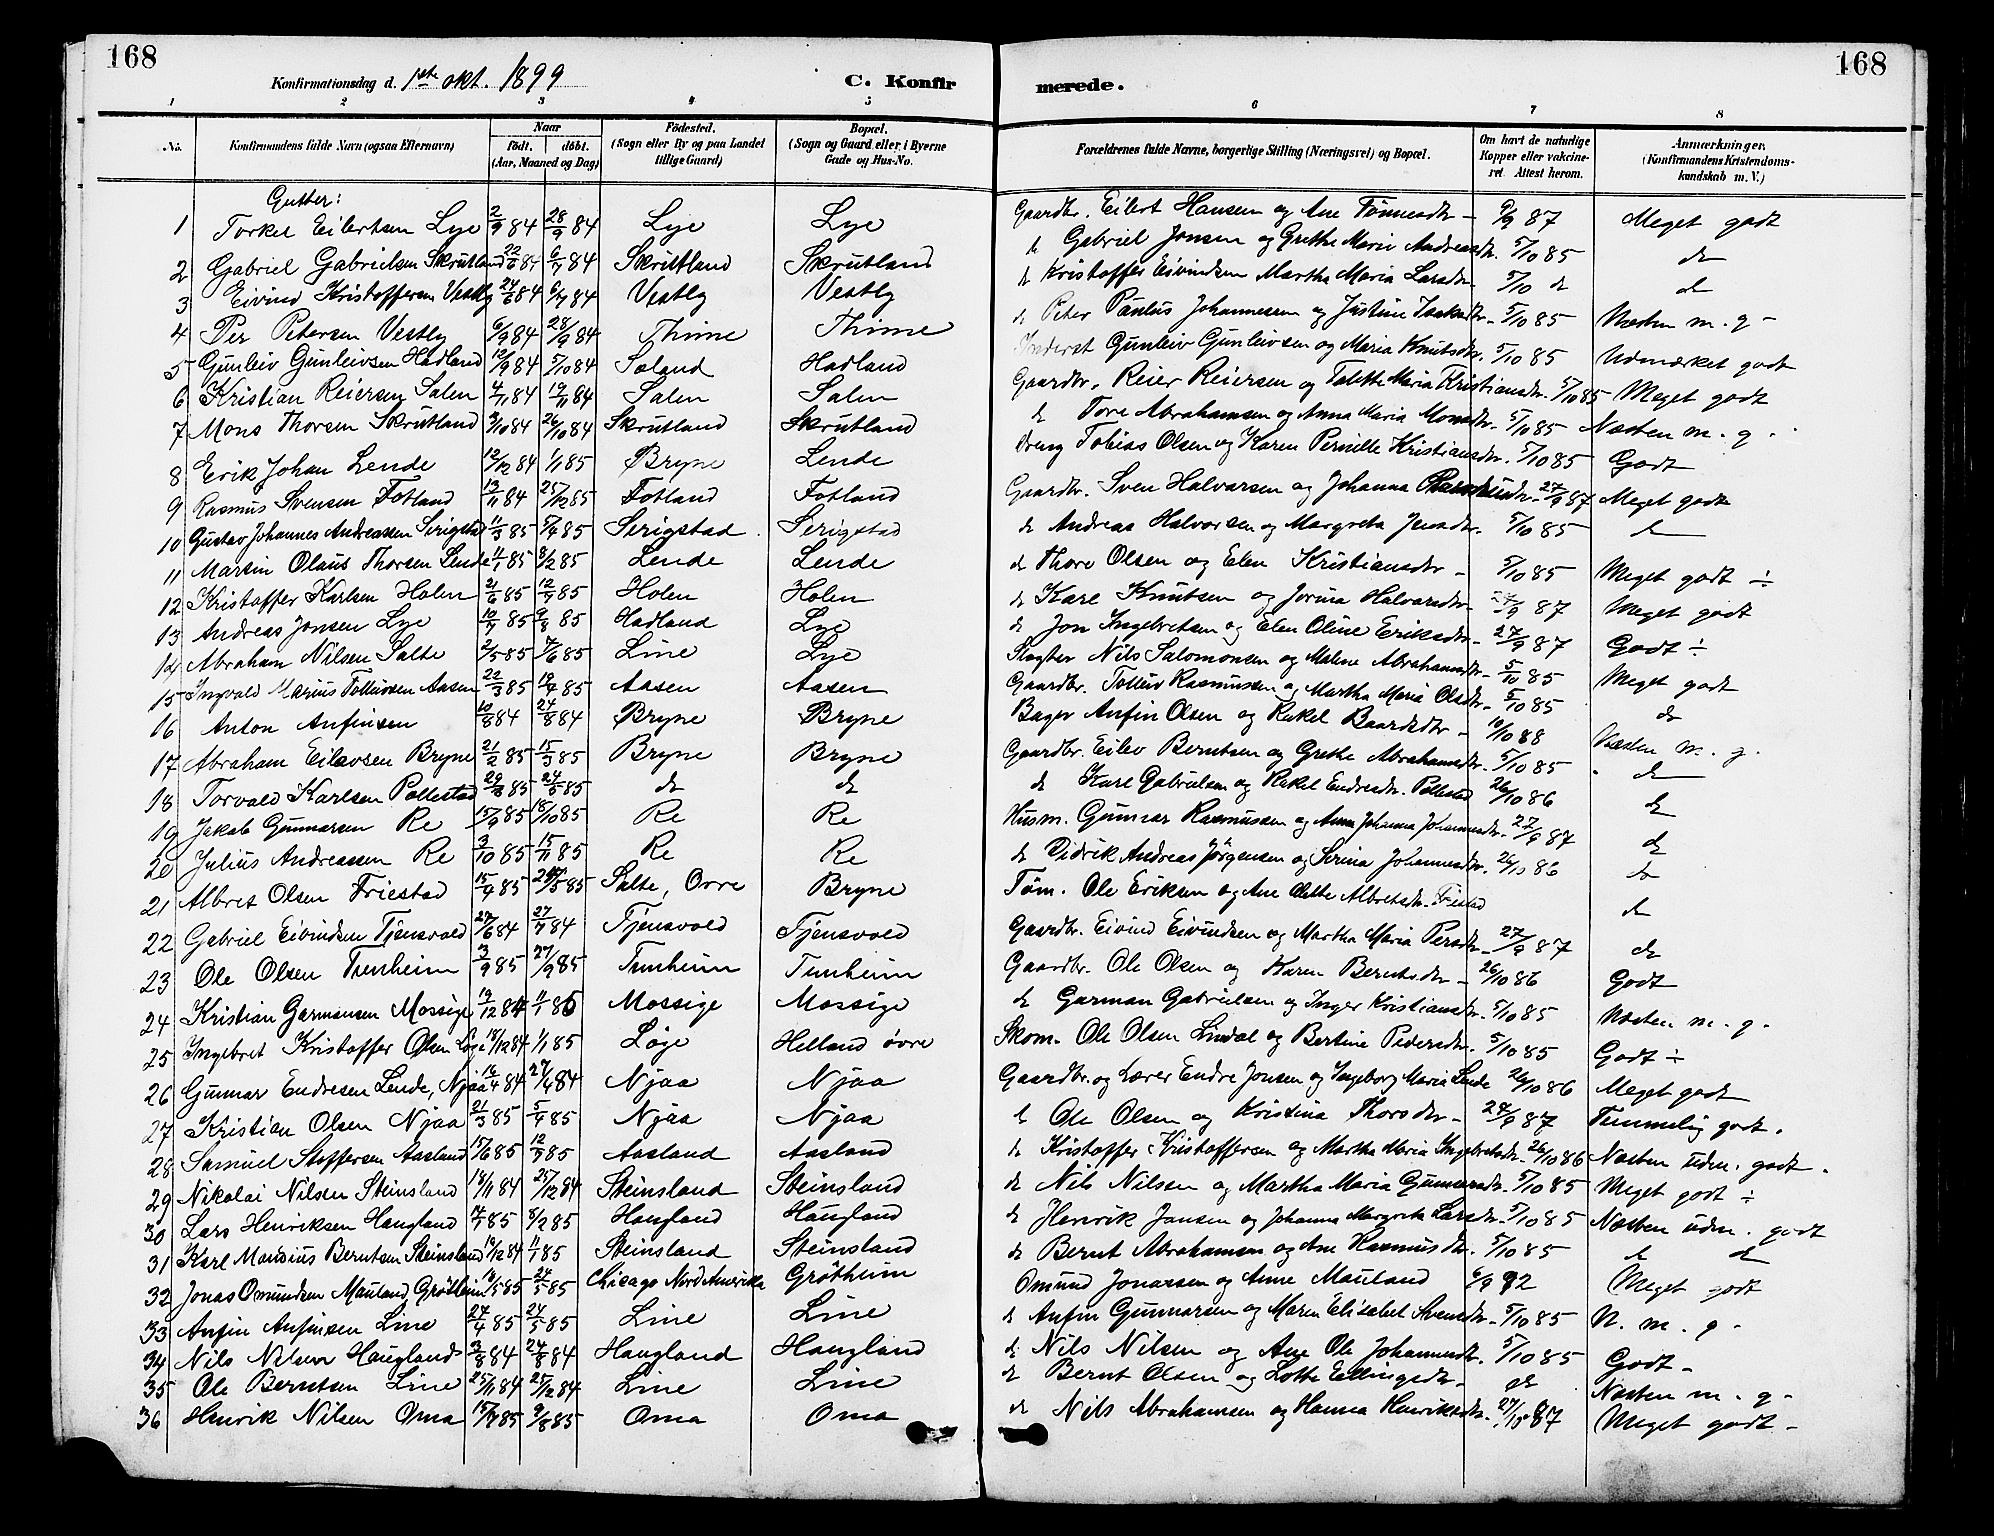 168
168
Konfirmationsdag d. 1ste okt. 1899
C. Konfirmerede.
1 2 3 4 5 6 7 8
No. Konfirmandens fulde Navn (ogsaa Efternavn) Naar født. døbt. (Aar, Maaned og Dag) Fødested. (Sogn eller By og paa Landet tillige Gaard) Bopæl. (Sogn og Gaard eller i Byerne Gade og Hus-No. Forældrenes fulde Navne, borgerlige Stilling (Næringsvei) og Bopæl. Om havt de naturlige Kopper eller vakcineret. Attest herom. Anmærkninger. (Konfirmandens Kristendomskundskab m. V.)
Gutter:
1 Torkel Eilertsen Lye 2/9 84 28/9 84 Lye Lye Gaardbr. Eilert Hansen og Ane Tønnesdtr - 9/9 87 Meget godt
2 Gabriel Gabrielsen Skrutland 22/6 84 6/7 84 Skrutland Skrutland d Gabriel Jonsen og Grethe Marie Andreasdtr. 5/10 85 do
3 Eivind Kristoffersen Vestly 24/6 84 6/7 84 Vestly Vestly d Kristoffer Eivindsen Martha Maria Larsdtr 5/10 d d
4 Per Petersen Vestly 6/9 84 28/9 84 Thime Thime d Peter Paulus Johannessen og Justine Isaksdtr - 5/10 85 Næsten m. g -
5 Gunleiv Gunleivsen Hadland 12/9 84 5/10 84 Soland Hadland Gunleiv Gunleivsen og Maria Knutsdtr. 5/10 85 Udmærket godt
6 Kristian Reiersen Salen 4/11 84 19/11 84 Salen Salen Gaardbr. Reier Reiersen og Tolette Maria Kristiansdtr. 5/10 85 Meget godt
7 Mons Thorsen Skrutland 3/10 84 26/10 84 Skrutland Skrutland d Tore Abrahamsen og Anna Maria Monsdtr. 5/10 85 Næsten m. g.
8 Erik Johan Lende 12/12 84 1/1 85 Bryne Lende Dreng Tobias Olsen og Karen Pernille Kristiansdtr. 5/10 85 Godt
9 Rasmus Svensen Fotland 13/11 84 25/12 85 Fotland Fotland Gaardbr. Sven Halvarsen og Johanna 27/9 87 Meget godt
10 Gustav Johannes Andreassen Serigstad 11/3 85 5/4 85 Serigstad Serigstad d Andreas Halvorsen og Margreta Jensdtr. 5/10 85 d
11 Martin Olaus Thorsen Lende 11/1 85 8/2 85 Lende Lende d Thore Olsen og Elen Kristiansdtr - 5/10 85 Meget godt ÷
12 Kristoffer Karlsen Holen 21/6 85 12/7 85 Holen Holen d Karl Knutsen og Jorina Halvarsdtr 27/9 87 Meget godt
13 Andreas Jonsen Lye 10/7 85 9/8 85 Hadland Lye d Jon Ingebretsen og Elen Oline Eriksdtr - 27/9 87 Godt ÷
14 Abraham Nilsen Salte 2/5 85 7/6 85 Line Lye Slagter Nils Salomonsen og Malene Abrahamsdtr. 5/10 85 Meget godt
15 Ingvald Marius Tolleivsen Aasen 22/3 85 19/4 85 Aasen Aasen Gaardbr. Tolleiv Rasmussen og Martha Maria Olsdtr. 5/10 85 d
16 Anton Anfinsen 10/8 84 24/8 84 Bryne Bryne Bager Anfin Olsen og Rakel Baardsdtr - 10/10 88 Næsten m. g.
17 Abraham Eilevsen Bryne 21/2 85 15/3 85 Bryne Bryne Gaardbr. Eilev Berntsen og Grethe Abrahamsdtr. 5/10 85 d
18 Torvald Karlsen Pollestad 29/3 85 24/5 85 d d d Karl Gabrielsen og Rakel Endresdtr. Pollestad 26/10 86 d
19 Jakob Gunnarsen Re 13/9 85 18/10 85 Re Re Husm. Gunnar Rasmussen og Anna Johanna Johannesdtr. 27/9 87 d
20 Julius Andreassen Re 3/10 85 15/11 85 Re Re d Didrik Andreas Jørgensen og Serina Johannesdtr. 26/10 86 d
21 Albret Olsen Friestad 15/4 85 /5 85 Salte, Orre Bryne Tøm. Ole Eriksen og Ane Albretsdtr. Friestad d
22 Gabriel Eivindsen Tjensvold 27/6 84 27/7 84 Tjensvold Tjensvold Gaardbr. Eivind Eivindsen og Martha Maria Persdtr - 27/9 87 d
23 Ole Olsen Tunheim 3/9 85 27/9 85 Tunheim Tunheim Gaardbr. Ole Olsen og Karen Berntsdtr - 26/10 86 Godt
24 Kristian Garmansen Mossige 19/12 84 11/1 85 Mossige Mossige d Garman Gabrielsen og Inger Kristiansdtr. 5/10 85 Næsten m. g.
25 Ingebret Kristoffer Olsen Løge 18/12 84 1/1 85 Løge Helland øvre Skom. Ole Olsen Lindal og Bertine Pedersdtr. 5/10 85 Godt ÷
26 Gunnar Endresen Lende, Njaa 14/4 84 27/4 84 Njaa Njaa Gaardbr. og Lærer Endre Jonsen og Ingeborg Maria Lende 26/10 86 Meget godt
27 Kristian Olsen Njaa 21/3 85 5/4 85 Njaa Njaa d Ole Olsen og Kristina Thorsdtr - 27/9 87 Temmelig godt.
28 Samuel Stoffersen Aasland 15/6 85 12/7 85 Aasland Aasland d Kristoffer Kristoffersen og Martha Maria Ingebretsdtr. 26/10 86 Næsten udm. godt.
29 Nikolai Nilsen Steinsland 18/11 84 25/12 84 Steinsland Steinsland d Nils Nilsen og Martha Maria Gunnarsdtr. 5/10 85 Meget godt ÷
30 Lars Henriksen Haugland 14/1 85 8/2 85 Haugland Haugland d Henrik Jansen og Johanna Margreta Larsdtr. 5/10 85 Næsten udm. godt
31 Karl Mandius Berntsen Steinsland 19/12 84 11/1 85 Steinsland Steinsland d Bernt Abrahamsen og Ane Rasmusdtr. 5/10 85 d d
32 Jonas Omundsen Mauland, Grøtheim 16/5 85 24/5 85 Chicago Nord Amerika Grøtheim Omund Jonassen og Anne Mauland 6/9 92 Meget godt
33 Anfin Anfinsen Line 27/4 85 24/5 85 Line Line d Anfin Gunnarsen og Maren Elisabet Svensdtr - 5/10 85 N. m. g -
34 Nils Nilsen Haugland 3/8 84 24/8 84 Haugland Haugland d Nils Nilsen og Ane Ole Johannesdtr. 5/10 85 Godt -
35 Ole Berntsen Line 25/11 84 25/12 84 Line Line d Bernt Olsen og Lotte Ellingsdtr - d Næsten m. g -
36 Henrik Nilsen Oma 15/7 85 9/8 85 Oma Oma d Nils Abrahamsen og Hanna Henriksdtr. 27/10 87 Meget godt -